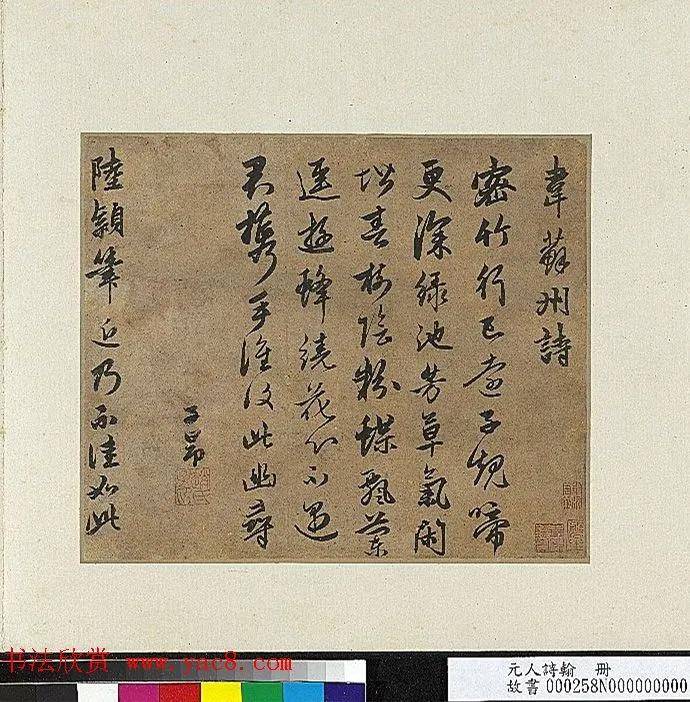 韋蘇州詩
密竹行已遠子規啼
更深綠池芳草氣閑
堦春樹陰粉蝶飄蘭
逕遊蜂繞花心不遇
君攜手誰復此幽尋
子昂
陸穎筆近乃不佳如此
书法欣赏 www.yac8.com
元人詩翰 冊
故書000258N000000000